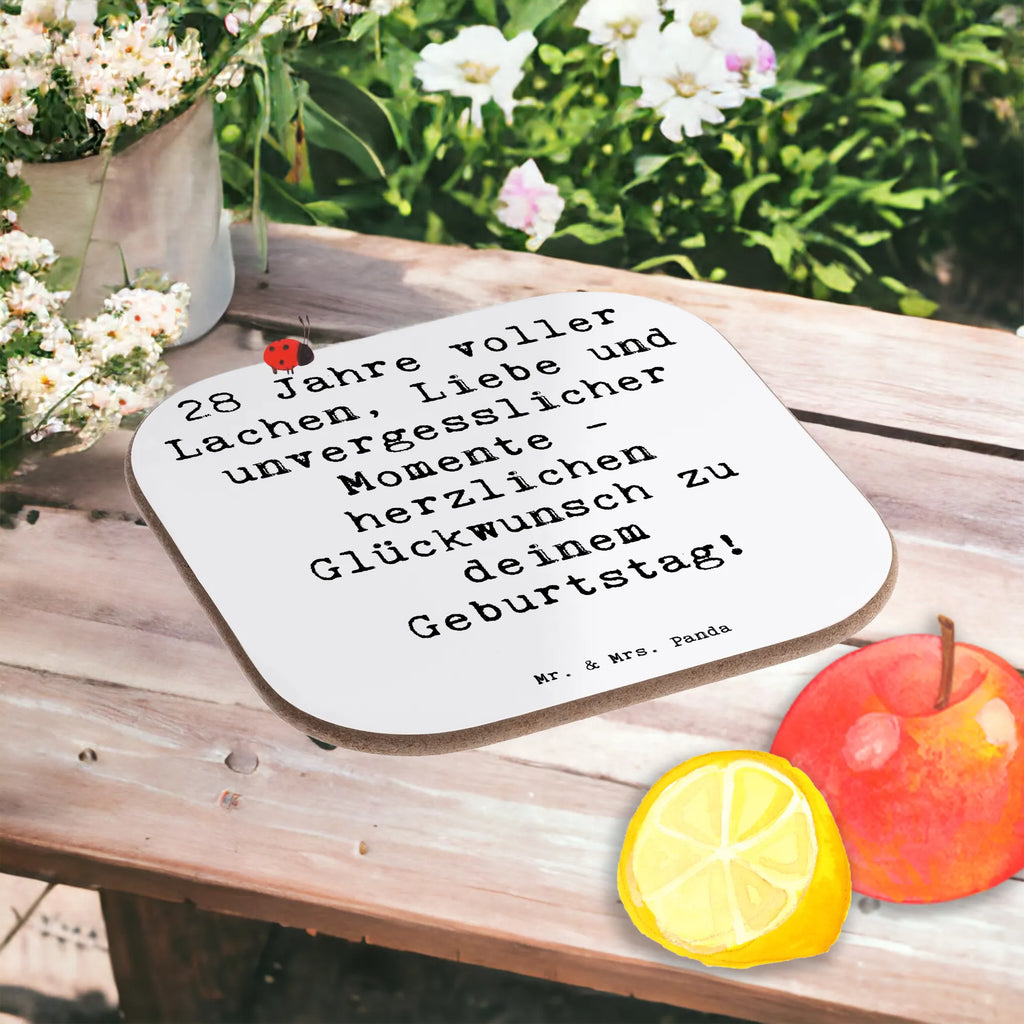 28 Jahre voller
Lachen, Liebe und
unvergesslicher
Momente -
herzlichen
Glückwunsch zu
deinem
Geburtstag!
Mr. & Mrs. Panda